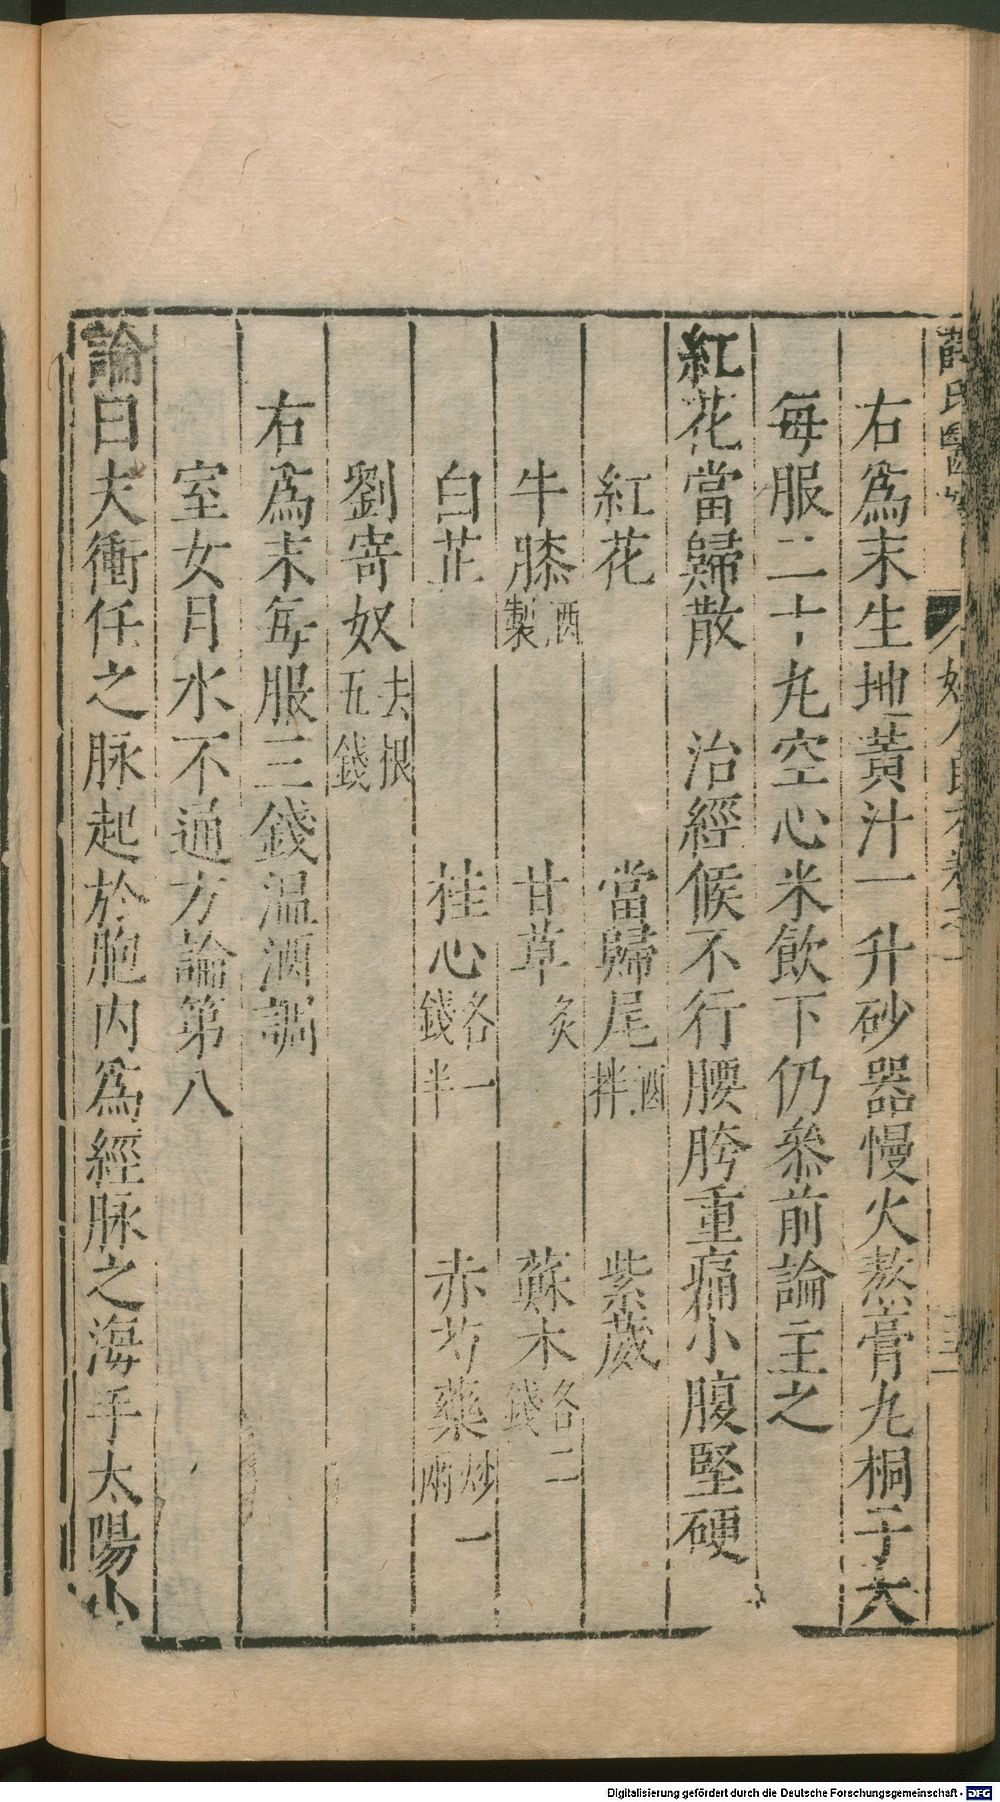 薛氏醫
婦人良方卷之一
右為末生地黃汁一升砂器慢火熬膏丸桐子大
每服二十丸空心米飲下仍叅前論主之
紅花當歸散 治經候不行腰胯重痛小腹堅硬
紅花 當歸尾酒拌 紫葳
牛膝酒製 甘草炙 蘇木各二錢
白芷 桂心各一錢半 赤芍藥炒一兩
劉寄奴去根五錢
右為末每服三錢温酒調
室女月水不通方論第八
論曰夫衝任之脉起於胞内為經脉之海手太陽小
Digitalisierung gefördert durch die Deutsche Forschungsgemeinschaft - DFG